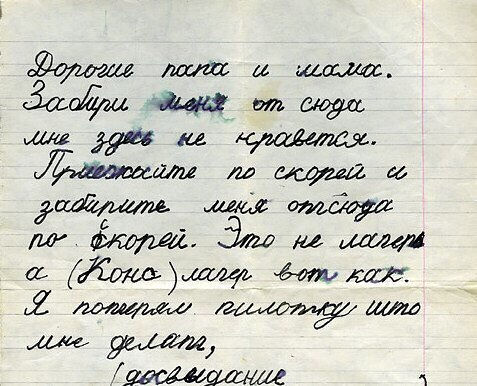 Дорогие папа и мама.
Забири меня от сюда
мне здесь не нравется.
Приежжайте по скорей и
забирите меня отсюда
по скорей. Это не лагерь
а (Конс) лагер вот как.
Я потерял пилотку што
мне делать,
(досвыдание